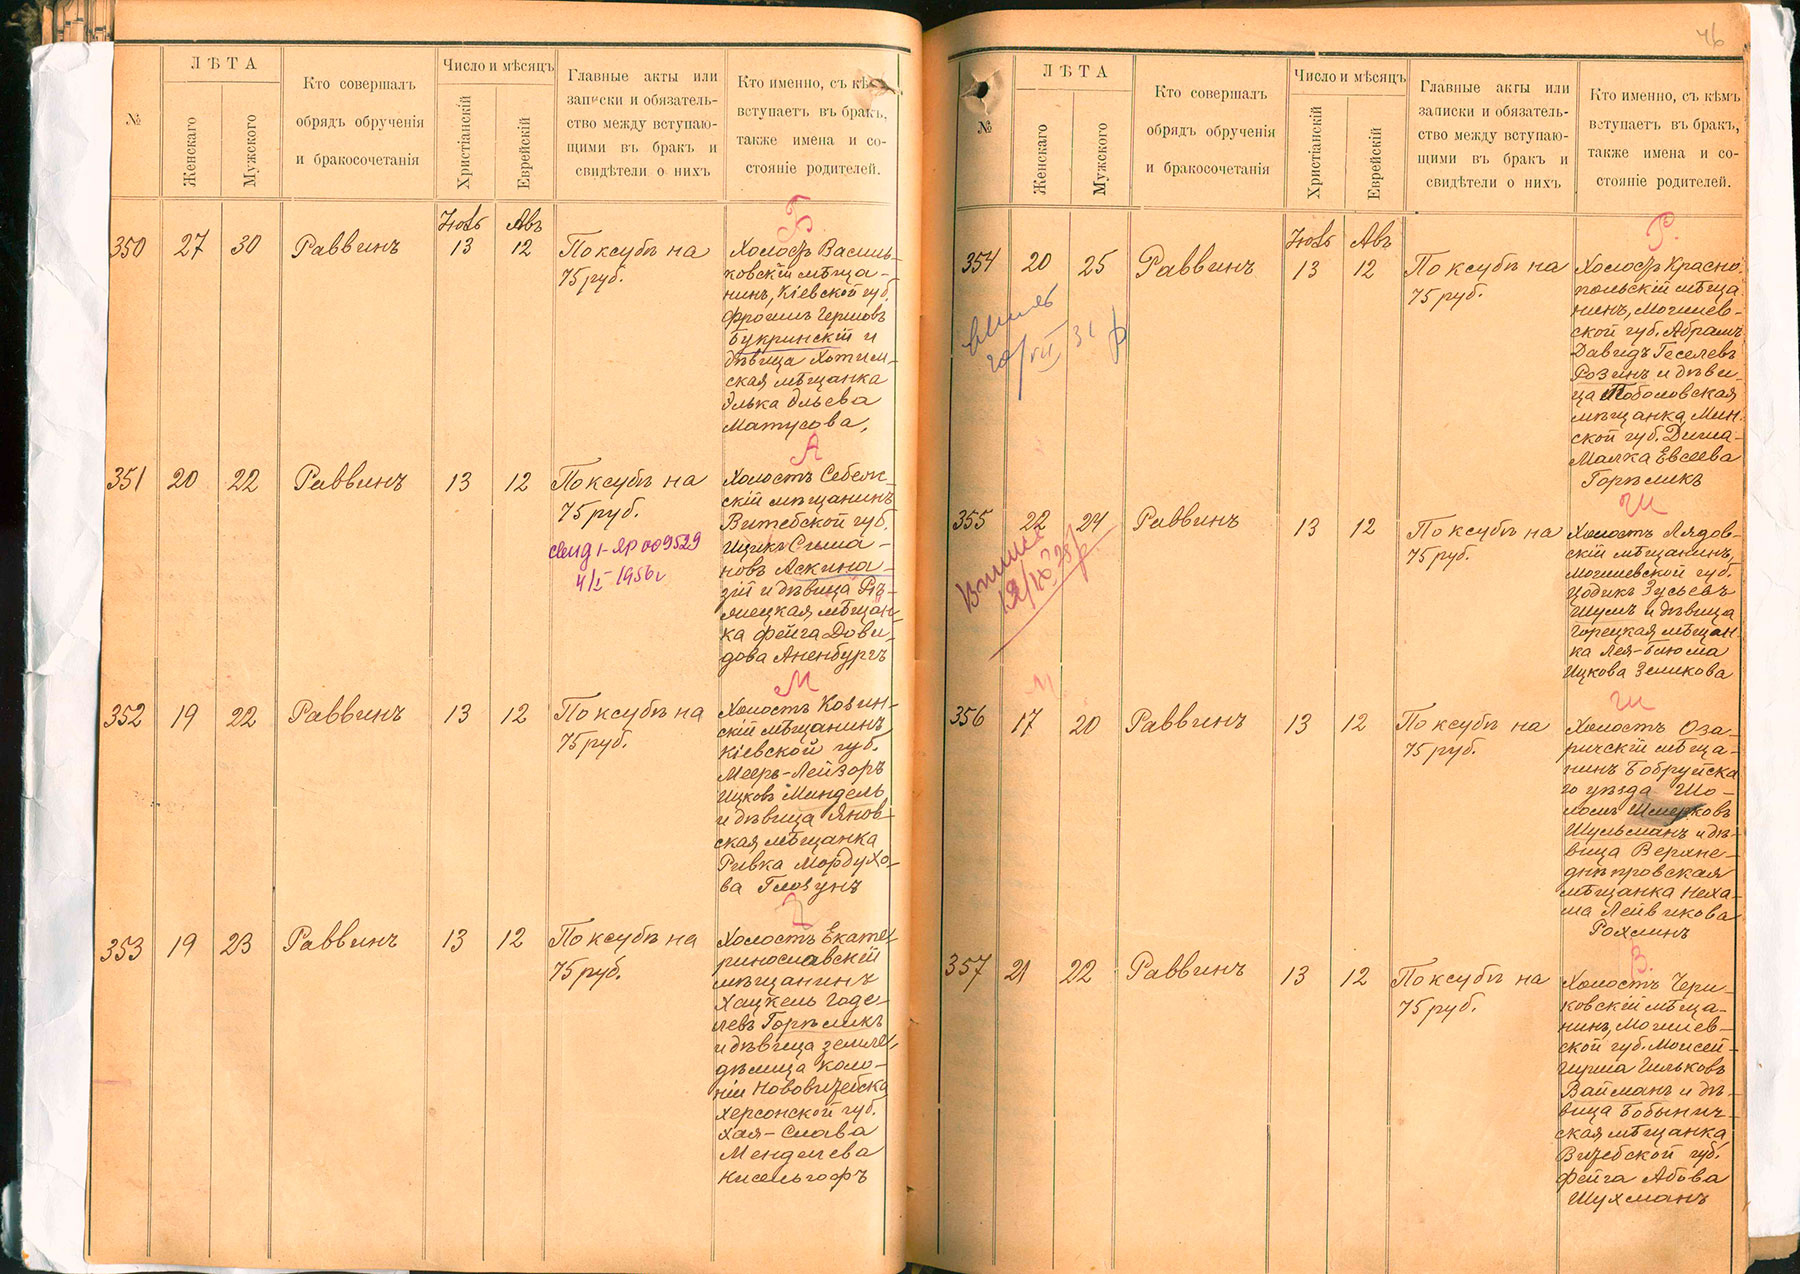 №
ЛѢТА
Женскаго
Мужского
Кто совершалъ
обрядъ обрученія
и бракосочетанія
Число и мѣсяцъ
Христіанскій
Еврейскій
Главные акты или
записки и обязатель-
ство между вступаю-
щими въ бракъ и
свидѣтели о нихъ
Кто именно, съ кѣмъ
вступаетъ въ бракъ,
также имена и со-
стояніе родителей.
Б
350 27 30 Раввинъ
Іюль 13
Авъ 12
По ксубѣ на
75 руб.
Холостъ Василь-
ковскій мѣща-
нинъ, Кіевской губ.
Фроимъ Гершовъ
Букринскій и
дѣвица Хотим-
ская мѣщанка
Элька Эльева
Матусова,
А
351 20 22 Раввинъ 13 12
По ксубѣ на
75 руб.
4/I 1956 г
Холостъ Себеж-
скій мѣщанинъ
Витебской губ.
Ицикъ Сима-
новъ Аскина-
зій и дѣвица Рѣ-
жецкая мѣщан-
ка Фейга Дови-
дова Аненбургъ
М
352 19 22 Раввинъ 13 12
По ксубѣ на
75 руб.
Холостъ
скій мѣщанинъ
Кіевской губ.
Мееръ-Лейзоръ
Ицковъ Миндель
и дѣвица Янов-
ская мѣщанка
Ривка Мордухо-
ва Гловунъ
353 19 23 Раввинъ 13 12
По ксубѣ на
75 руб.
Холостъ Екате-
ринославскій
мѣщанинъ
Хацкель Годе-
левъ Горѣликъ
и дѣвица землед-
дѣлица коло-
ніи Нововитебска
Херсонской губ.
Хая-Слава
Менделева
Кисельгофъ
46
№
ЛѢТА
Женскаго
Мужского
Кто совершалъ
обрядъ обрученія
и бракосочетанія
Число и мѣсяцъ
Христіанскій
Еврейскій
Главные акты или
записки и обязатель-
ство между вступаю-
щими въ бракъ и
свидѣтели о нихъ
Кто именно, съ кѣмъ
вступаетъ въ бракъ,
также имена и со-
стояніе родителей.
Р.
354 20 25 Раввинъ
Іюль 13
Авъ 12
По ксубѣ на
75 руб.
20/VII 31
Холостъ Красно-
польскій мѣща-
нинъ, Могилев-
ской губ. Абрамъ
Давидъ Геселевъ
Розинъ и дѣви-
ца Поболовская
мѣщанка, Мин-
ской губ. Дишa-
Малка Евсеева
Горѣликъ
Ш
355 22 24 Раввинъ 13 12
По ксубѣ на
75 руб.
Холостъ Лядов-
скій мѣщанинъ,
Могилевской губ.
Цодикъ Зусьевъ
Шумъ и дѣвица
Горецкая мѣщан-
ка Лея-Блюма
Ицкова Зеликова
М
Ш
356 17 20 Раввинъ 13 12
По ксубѣ на
75 руб.
Холостъ Оза-
ричскій мѣща-
нинъ Бобруйска-
го уѣзда Шо-
ломъ Шмерковъ
Шульманъ и дѣ-
вица Верхне-
днѣпровская
мѣщанка Неха-
ма Лейвикова
Рохлинъ
В.
357 21 22 Раввинъ 13 12
По ксубѣ на
75 руб.
Холостъ Чери-
ковскій мѣща-
нинъ, Могилев-
ской губ. Моисей-
Гирша Гильковъ
Вайманъ и дѣ-
вица Бобынич-
ская мѣщанка
Витебской губ.
Фейга Абова
Шухманъ